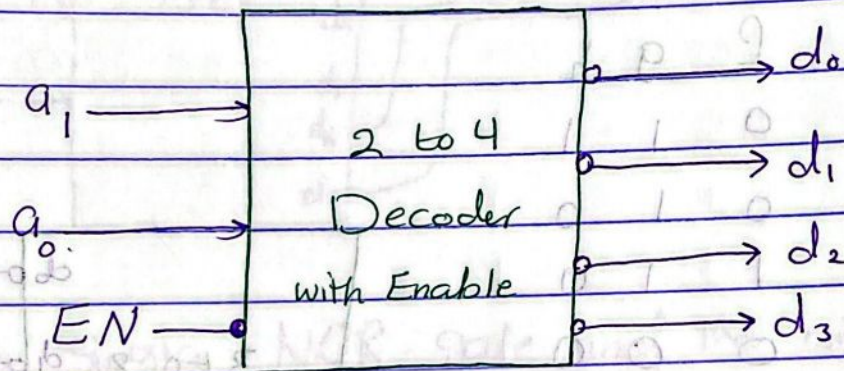 a₁
a₀.
EN
2 to 4
Decoder
with Enable
d₀
d₁
d₂
d₃